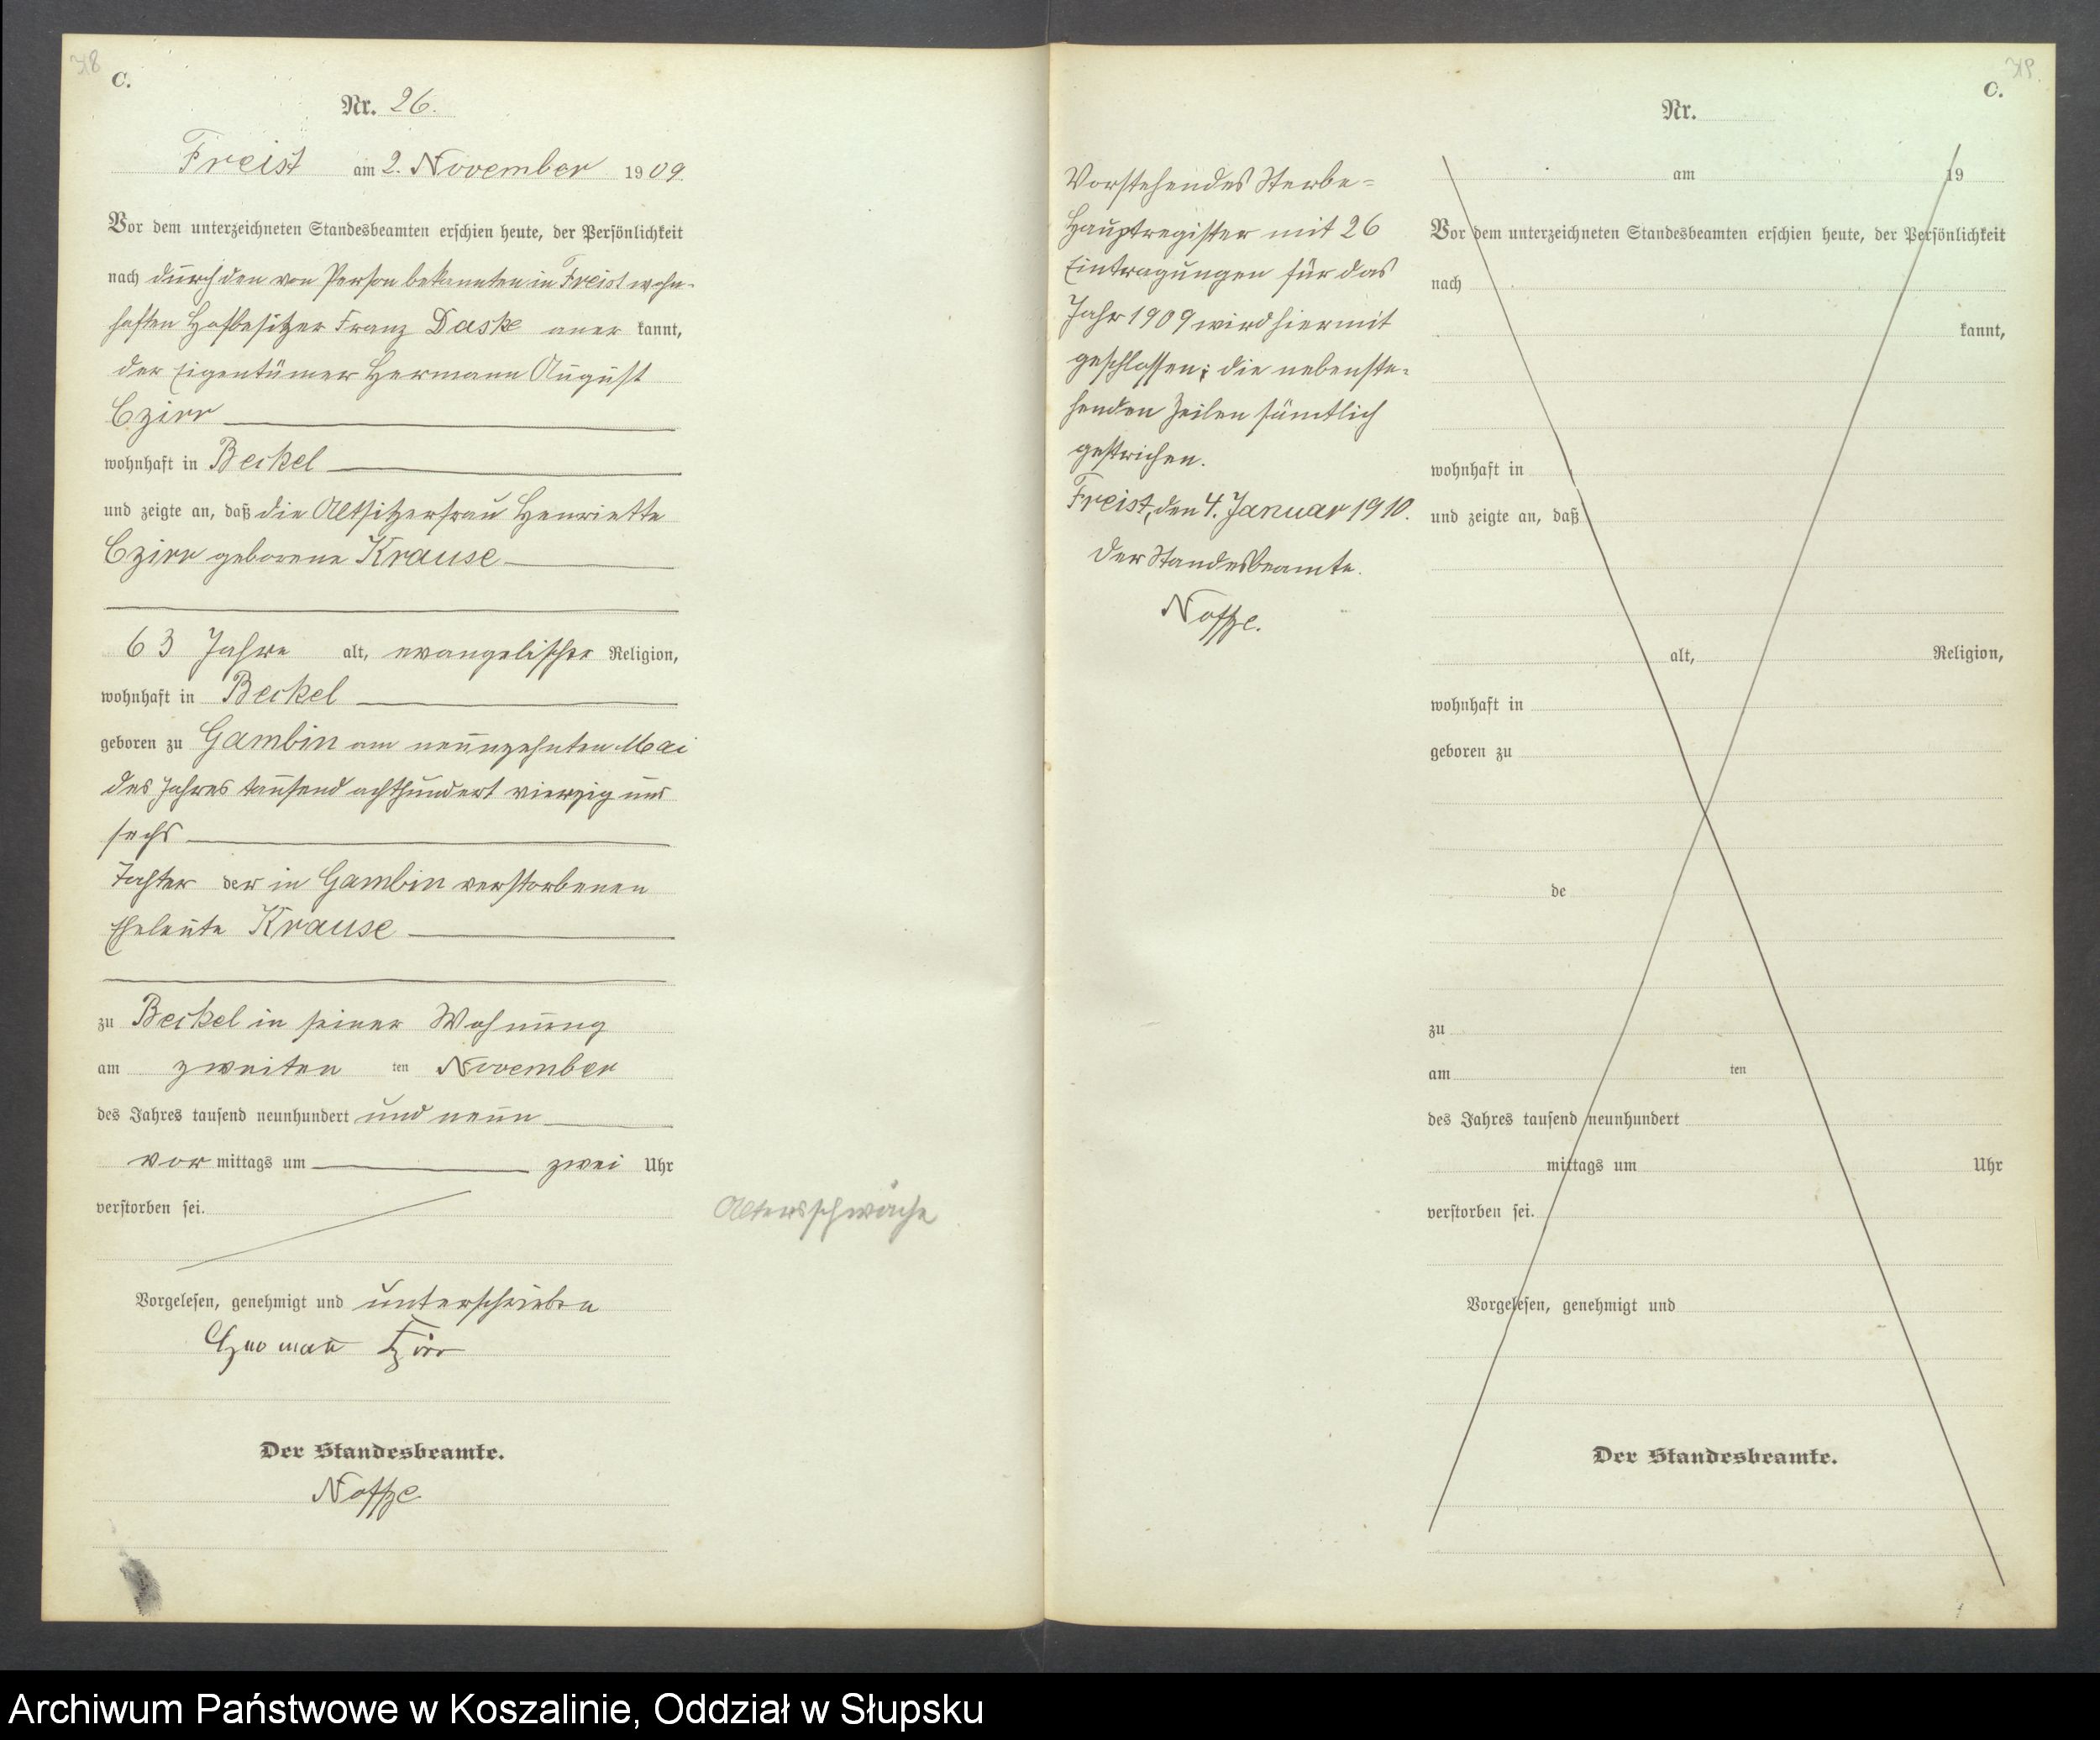 C.
Nr. 26.
Freist am 2. November 1909
Vor dem unterzeichneten Standesbeamten erschien heute, der Persönlichkeit
nach durch den von Person bekannten in Freist wohn-
haften Hofbesitzer Franz Daske aner kannt,
der Eigentümer Hermann August
Czirr
wohnhaft in Beckel
und zeigte an, daß die Altsitzerfrau Henriette
Czirr geborene Krause
63 Jahre alt, evangelischer Religion,
wohnhaft in Beckel
geboren zu Gambin am neunzehnten Mai
des Jahres tausend achthundert vierzig und
sechs
Tochter der in Gambin verstorbenen
Eheleute Krause
zu Beckel in seiner Wohnung
am zweiten ten November
des Jahres tausend neunhundert und neun
vor mittags um zwei Uhr
verstorben sei.
Altersschwäche
Vorgelesen, genehmigt und unterschrieben
Hermann Czirr
Der Standesbeamte.
Noffze
318
319.
C.
Vorstehendes Sterbe=
Hauptregister mit 26
Eintragungen für das
Jahr 1909 wird hiermit
geschlossen; die nebenste-
henden Zeilen sämtlich
gestrichen.
Freist, den 4. Januar 1910.
Der Standesbeamte.
Noffze.
Nr.
am 19
Vor dem unterzeichneten Standesbeamten erschien heute, der Persönlichkeit
nach
kannt,
wohnhaft in
und zeigte an, daß
alt, Religion,
wohnhaft in
geboren zu
de
zu
am ten
des Jahres tausend neunhundert
mittags um Uhr
verstorben sei.
Vorgelesen, genehmigt und
Der Standesbeamte.
Archiwum Państwowe w Koszalinie, Oddział w Słupsku